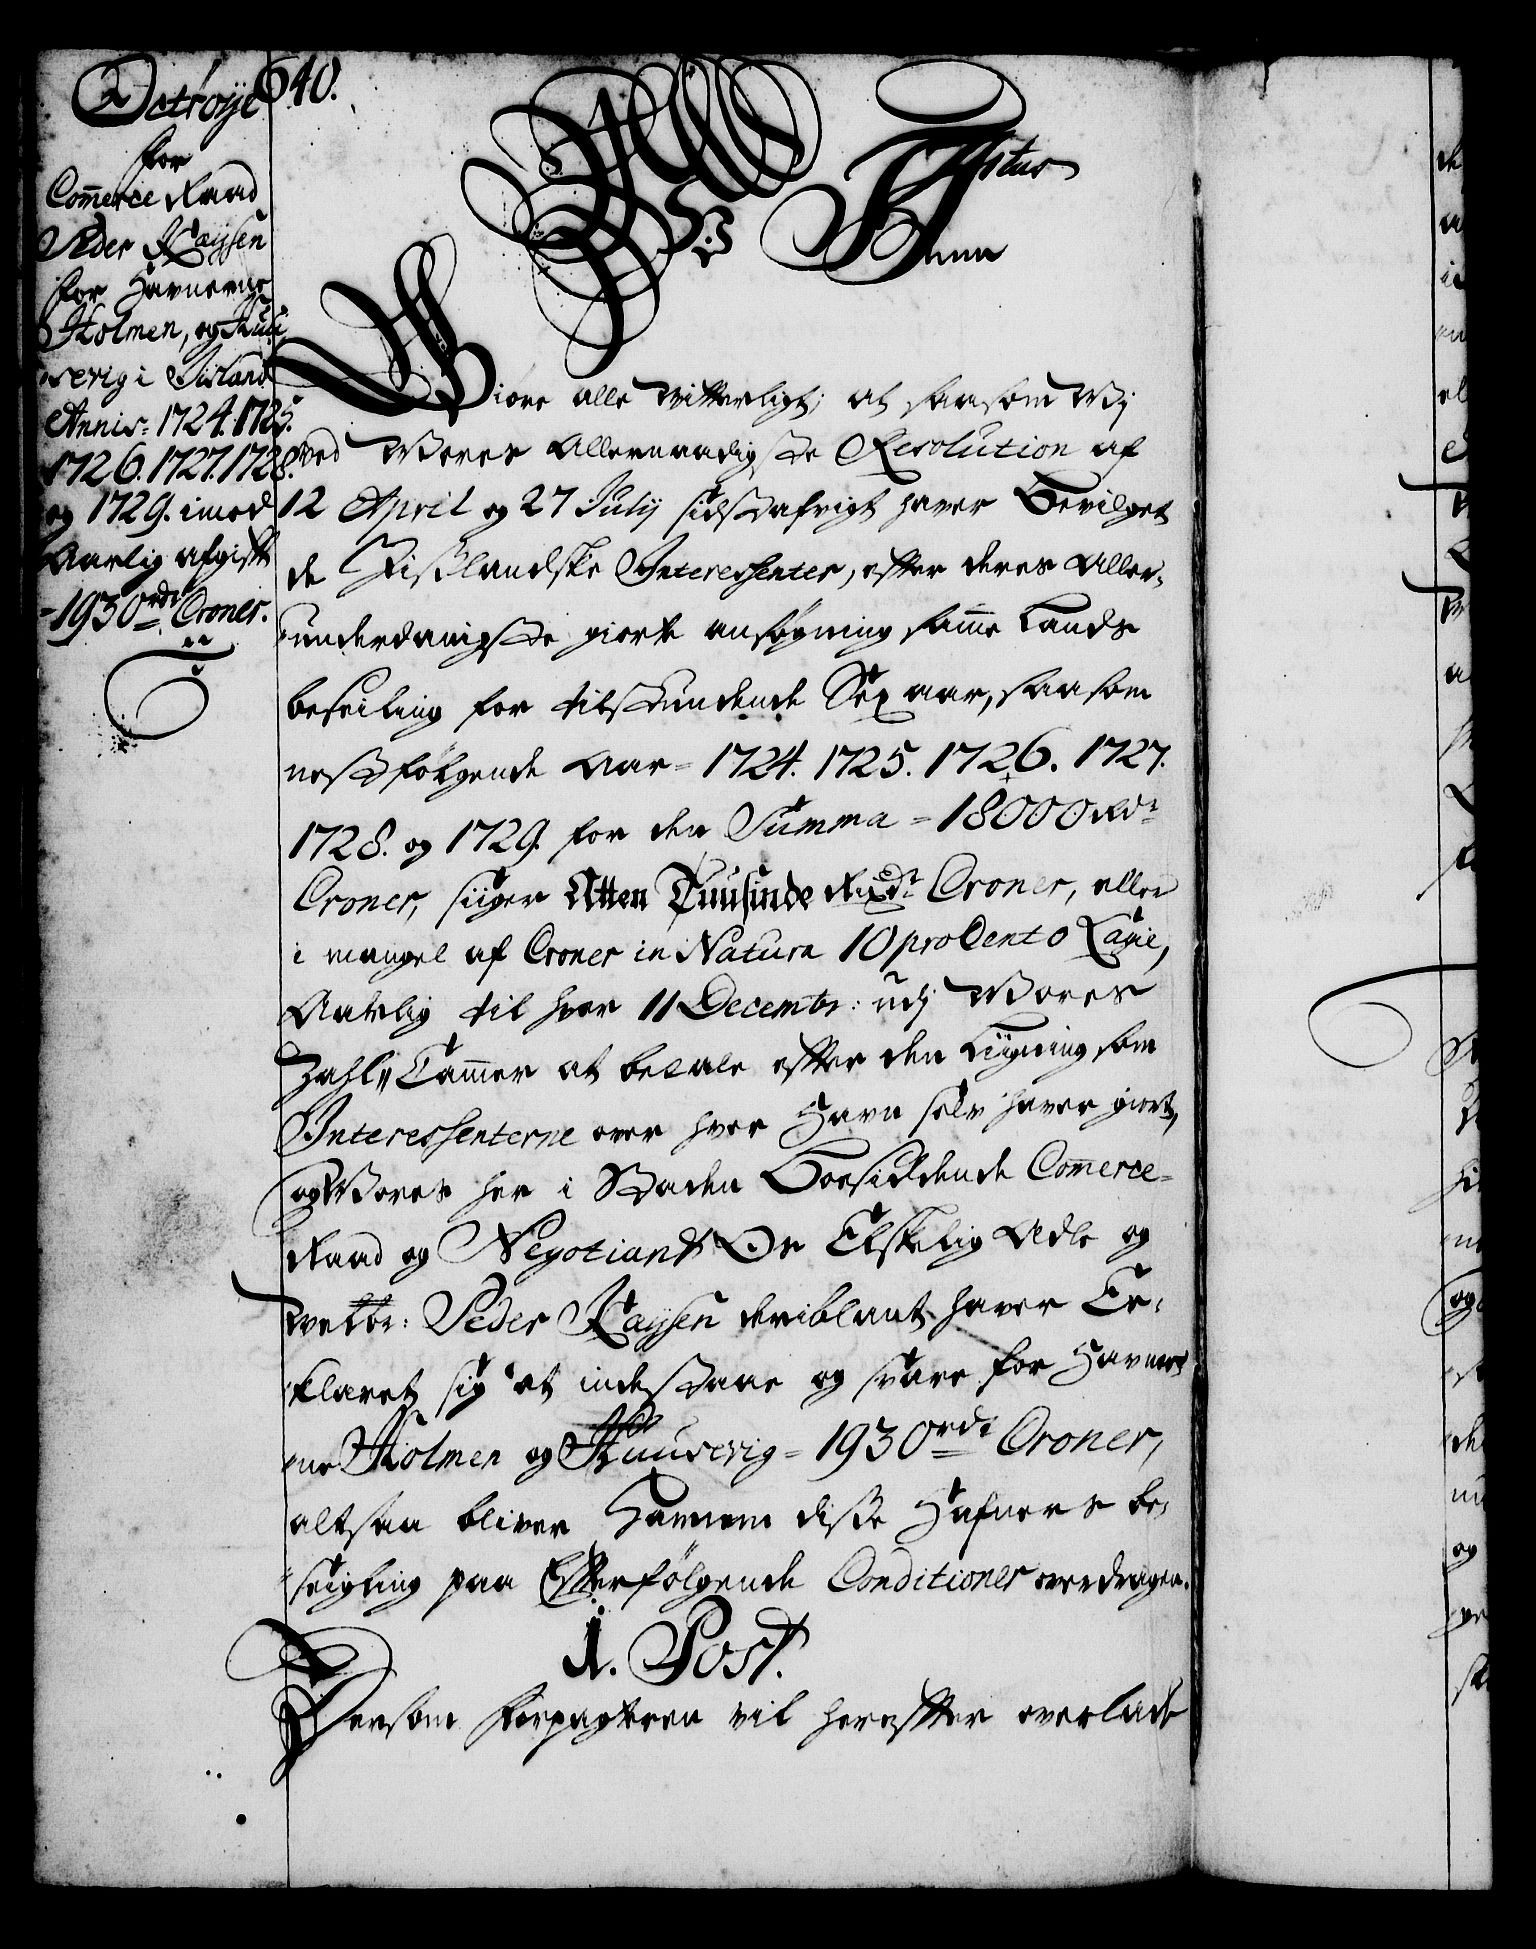 640.
Octroÿe
for
Com̄erce Raad
Peder Kaÿsen
for Havnerne
Holmen, og Kuu¬
serig i Iisland
Annis. 1724. 1725.
1726. 1727. 1728.
og 1729. imod
Aarlig afgift
- 1930 rdr Croner.
Giøre alle vitterligt; at saasom Wj
ved Vores Allernaadigste Resolution af
12 April og 27 Julij sidstafvigt haver Bevilget
de Iißlandske Interessenter, efter deres Aller¬
underdanigste giorte ansøgning sam̄e Lands
beseiling for tilstundende Sex aar, saasom
nestfølgende Aar = 1724. 1725. 1726. 1727.
1728. og 1729. for den Summa = 18000 Rdr
Croner, siiger Atten Tuusinde Rixdr Croner, eller
i mangel af Croner in Natura 10 proCento Lagie,
Aarlig til hver 11 Decembr: udj Vores
Zahl Cam̄er at betale efter den Ligning som
Interessenterne over hver Havn selv haver giort,
og Vores her i Staden Boesiddende Com̄erce¬
Raad og Negotiant Os Elskelig Adle og
Welbr: Peder Kaÿsen deriblant haver Er¬
klaret sig at indestaae og svare for Havner¬
ne Holmen og Kuuserig = 1930 rdr Croner,
altsaa bliver Hannem disse Hafners be¬
seigling paa Efterfølgende Conditioner overdragen.
1. Post.
Dersom Forpagteren vil herefter overlade